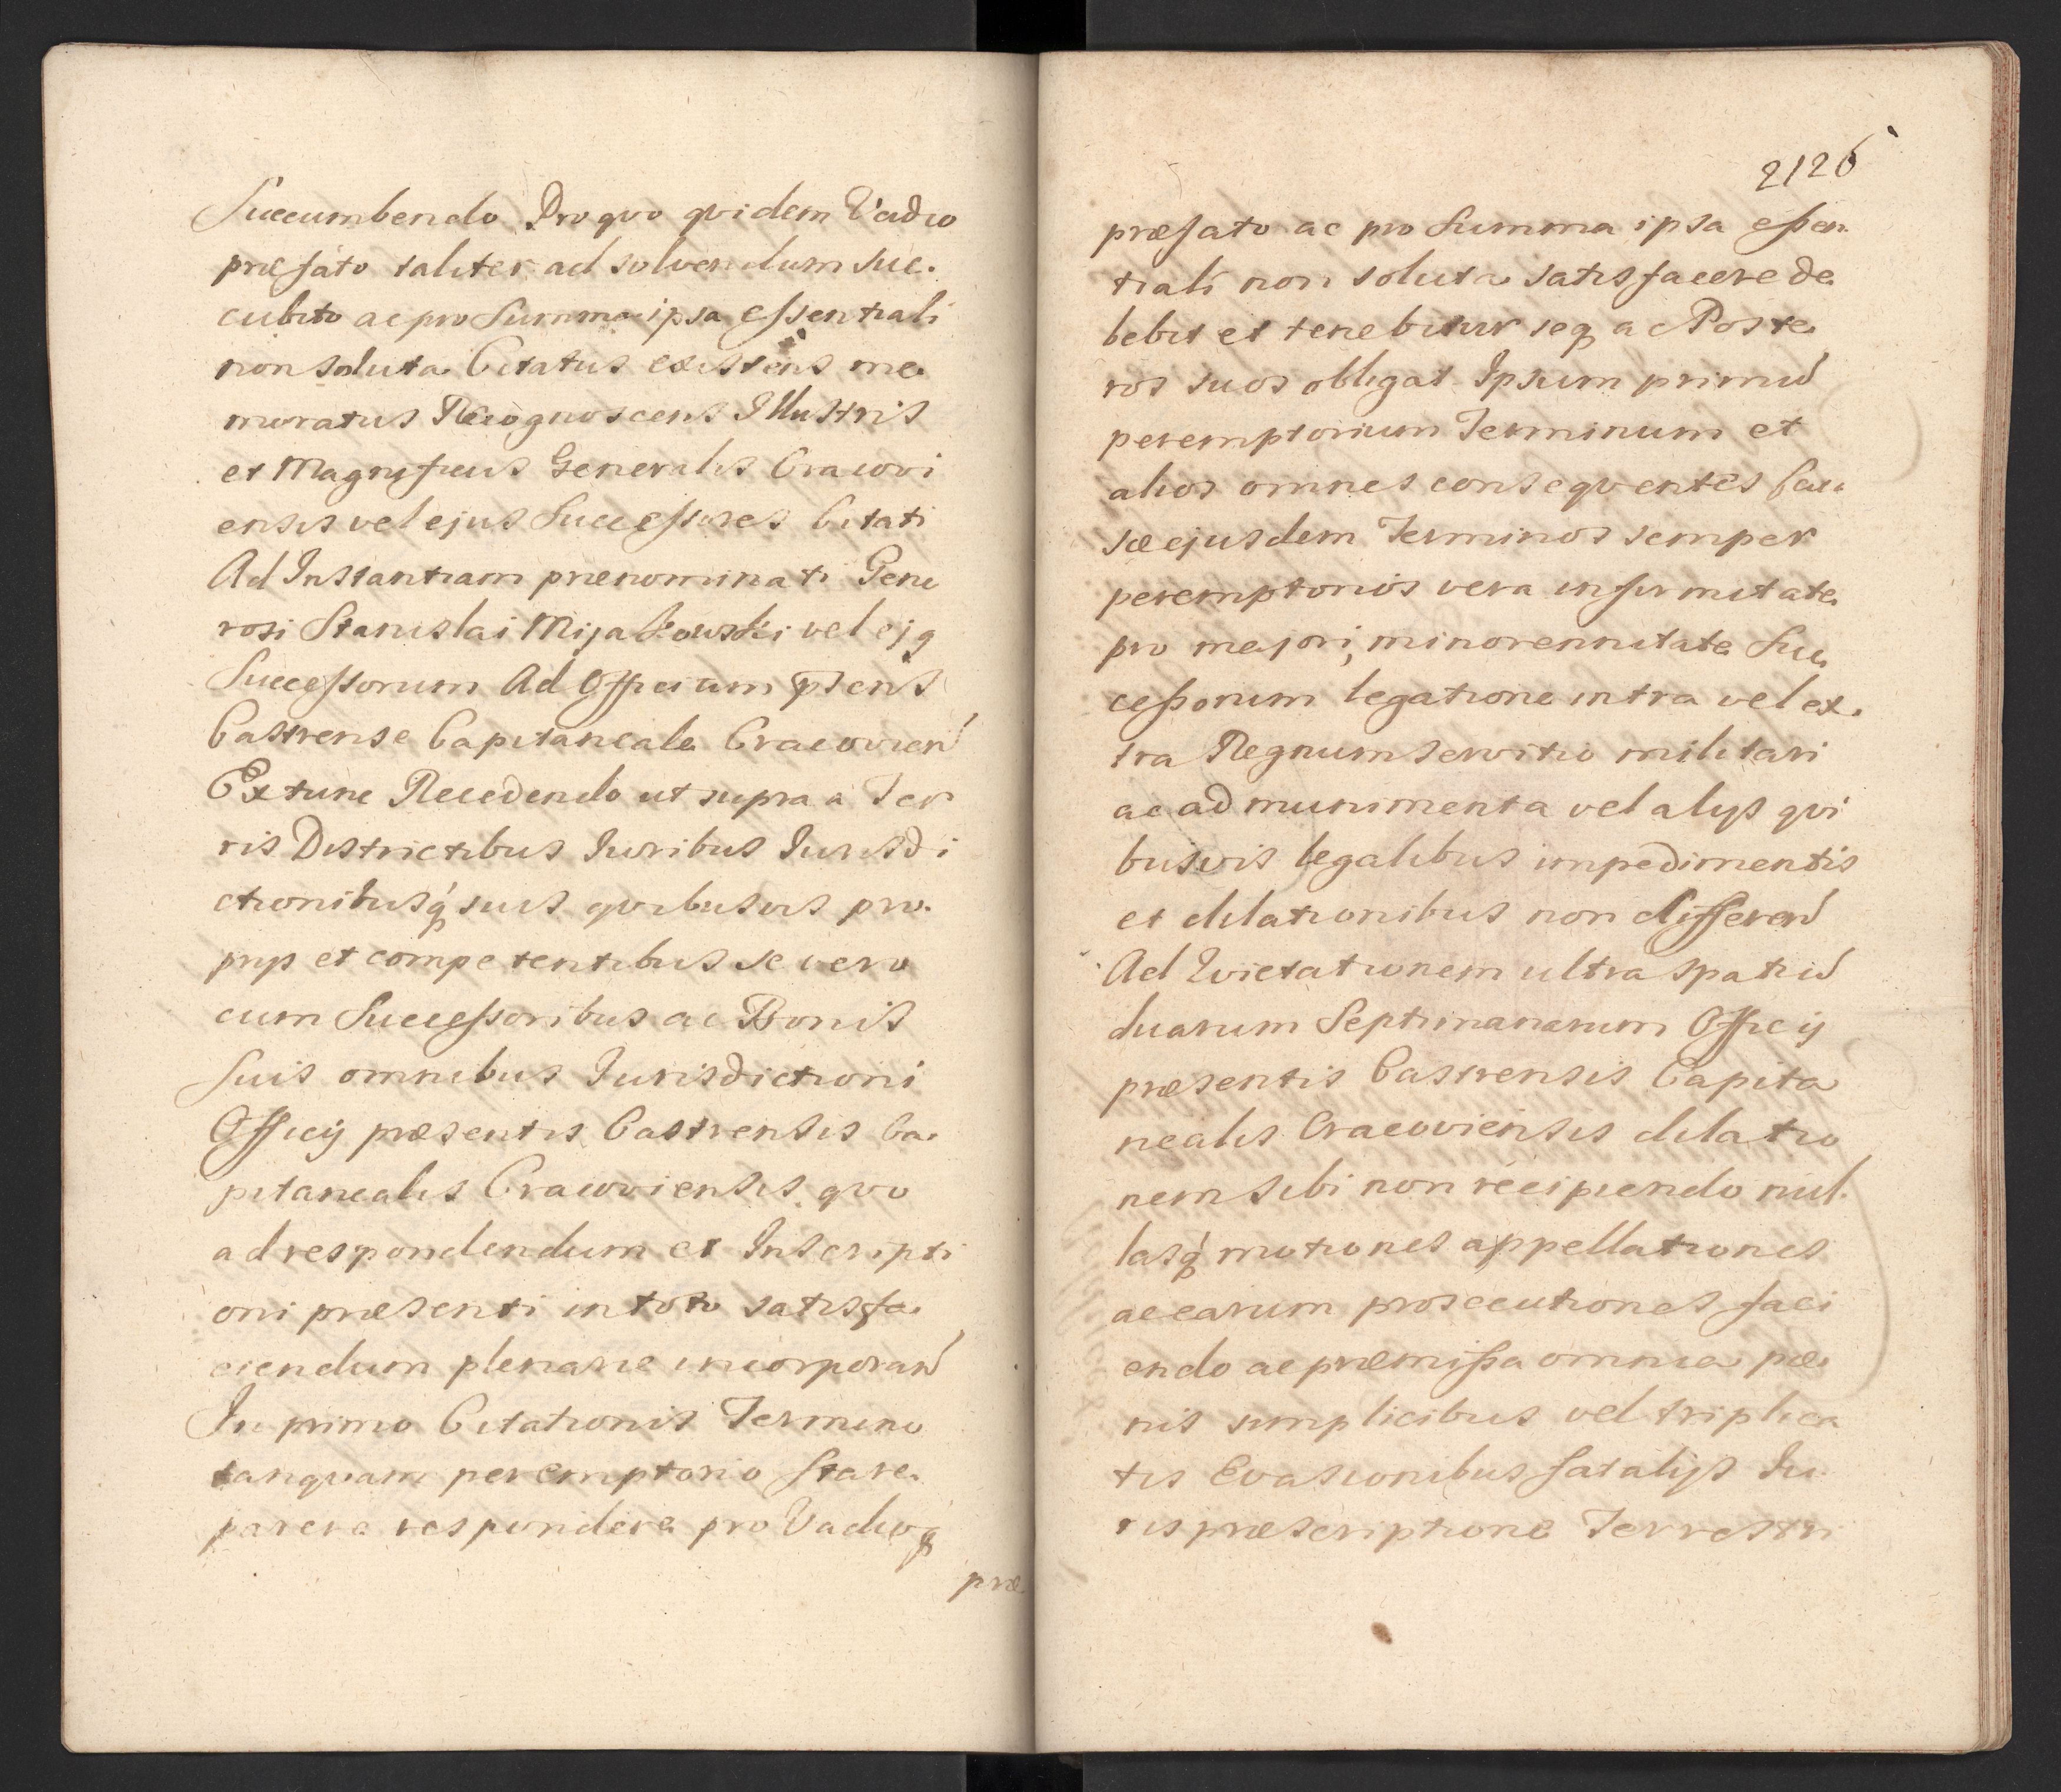 Succumbendo Pro quo quidem Vadio
præfato taliter ad solvendum suc.
cubito ac pro Summa ipsa essentiali
non soluta Citatus existens me
moratus Recognoscens Illustris
et Magnificus Generalis Cracovi
ensis vel ejus Successores Citati
Ad Instantiam prænominati Gene
rosi Stanislai Mijakowski vel ejq
Successorum Ad Officium pͦsens
Castrense Capitaneale Cracovien̄
Extunc Recedendo ut supra a Ter
ris Districtibus Iuribus Iurisdi
ctionibusq́ suis quibusvis pro.
prijs et competentibus se vero
cum Successoribus ac Bonis
suis omnibus Iurisdictioni
Officij præsentis Castrensis Ca.
pitanealis Cracoviensis quo
ad respondendum et Inscripti
oni præsenti in toto satisfa.
ciendum plenarie incorporan̄
In primo Citationis Termino
tanquam peremptorio Stare.
parere respondere pro Vadioq́
præ.
2126
præfato ac pro Summa ipsa essen.
tiali non soluta satisfacere de
bebit et tenebitur seq ac Poste
ros suos obligat Ipsum primū
peremptorium Terminum et
alios omnes consequentes Cau
sæ ejusdem Terminos semper
peremptorios vera infirmitate
pro majori, minorennitate Suc
cessorum legatione intra vel ex.
tra Regnum servitio militari
ac ad munimenta vel alijs qui
busvis legalibus impedimentis
et dilationibus non differen̄
Ad Evictationem ultra spatiū
duarum Septimanarum Officij
præsentis Castrensis Capita
nealis Cracoviensis dilatio
nem sibi non recipiendo nul.
lasq́ motiones appellationes
ac earum prosecutiones faci
endo ac præmissa omnia pæ
nis simplicibus vel triplica
tis Evasionibus fatalijs Iu
ris præscriptione Terrestri